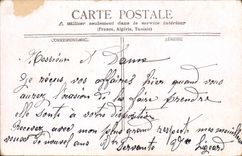 CARTE POSTALE
A utiliser seulement dans le service intérieur
(France, Algérie, Tunisie)
CORRESPONDANCE
ADRESSE
Monsieur et Dame
Je reçus vos affaires hier quand vous
aurez l'occasion de les faire prendre
elle sont à votre disposition
Recevez avec mon plus grand respect mes meilleurs
vœux de nouvel ans
Servante